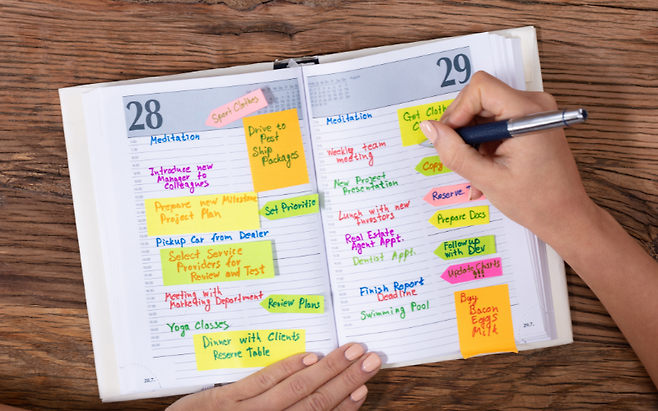 28
Sport Clothes
Meditation
Drive to
Post
Ship
Packages
Introduce new
Manager to
colleagues
Prepare new Milestone
Project Plan
Set Prioritie
Pickup Car from Dealer
Select Service
Providers for
Review and Test
Meeting with
Marketing Department
Review Plans
Yoga Classes
Dinner with Clients
Reserve Table
29
Meditation
Get Clothes
Weekly team
meeting
Copy
New Project
Presentation
Reserve
Lunch with new
Investors
Prepare Docs
Real Estate
Agent Appt.
Followup
with Dev
Dentist Appt.
Update Charts
Finish Report
Deadline
Buy
Bacon
Eggs
Milk
Swimming Pool